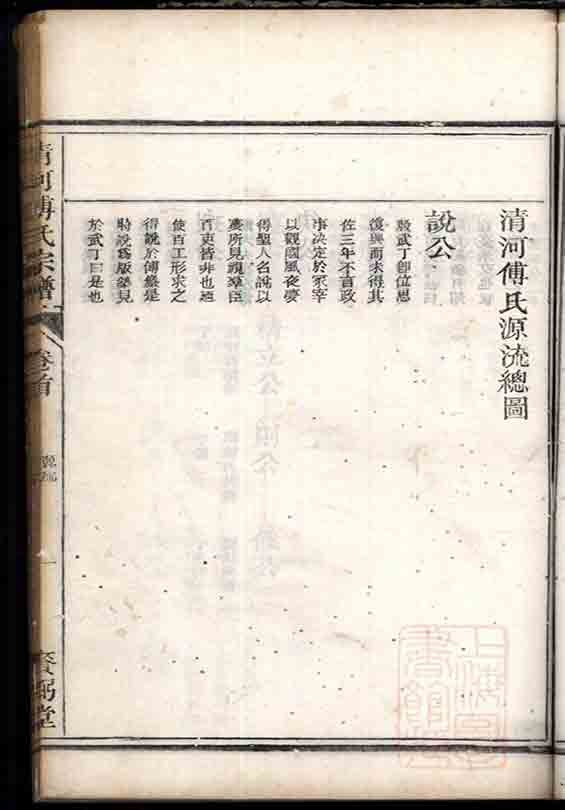 清河傅氏源流總圖
說公
殷武丁卽位思
復興而未得其
佐三年不言政
事決定於冢宰
以觀國風夜夢
得聖人名說以
夢所見視羣臣
百吏皆非也迺
使百工形求之
得說於傅巖是
時說爲版築見
於武丁曰是也
清河傅氏宗譜
卷首
源流
一
賚弼堂